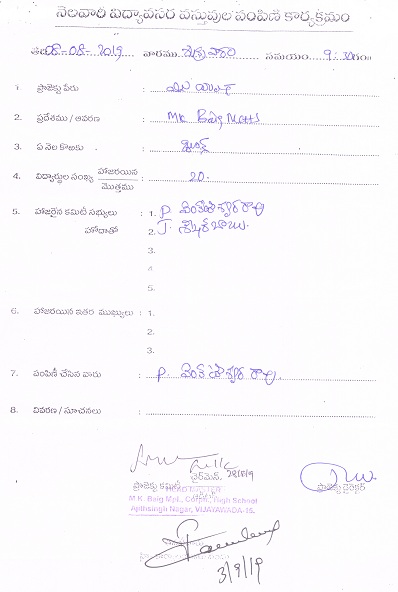 నెలవారి విద్యావసర వస్తువుల పంపిణీ కార్యక్రమం
08-08-2019 వారము శుక్రవారం సమయం 9:30గం
1. ప్రాజెక్టు పేరు :
2. ప్రదేశము / ఆవరణ : MK Baig MCHS
3. ఏ నెల కొఱకు :
4. విద్యార్థుల సంఖ్య హాజరయిన / మొత్తము : 20.
5. హాజరైన కమిటీ సభ్యులు : 1. P. వెంకటేశ్వర రావు
హోదాతో 2. J. బాబు.
3.
4.
5.
6. హాజరయిన ఇతర ముఖ్యులు : 1.
2.
3.
7. పంపిణీ చేసిన వారు : P. వెంకటేశ్వర రావు.
8. వివరణ / సూచనలు :
ప్రాజెక్టు కమిటీ ఛైర్మెన్.
ప్రాజెక్టు డైరెక్టర్
M K. Baig Mpl., Corpn., High School
Ajithsingh Nagar, VIJAYAWADA-15.
3/9/19